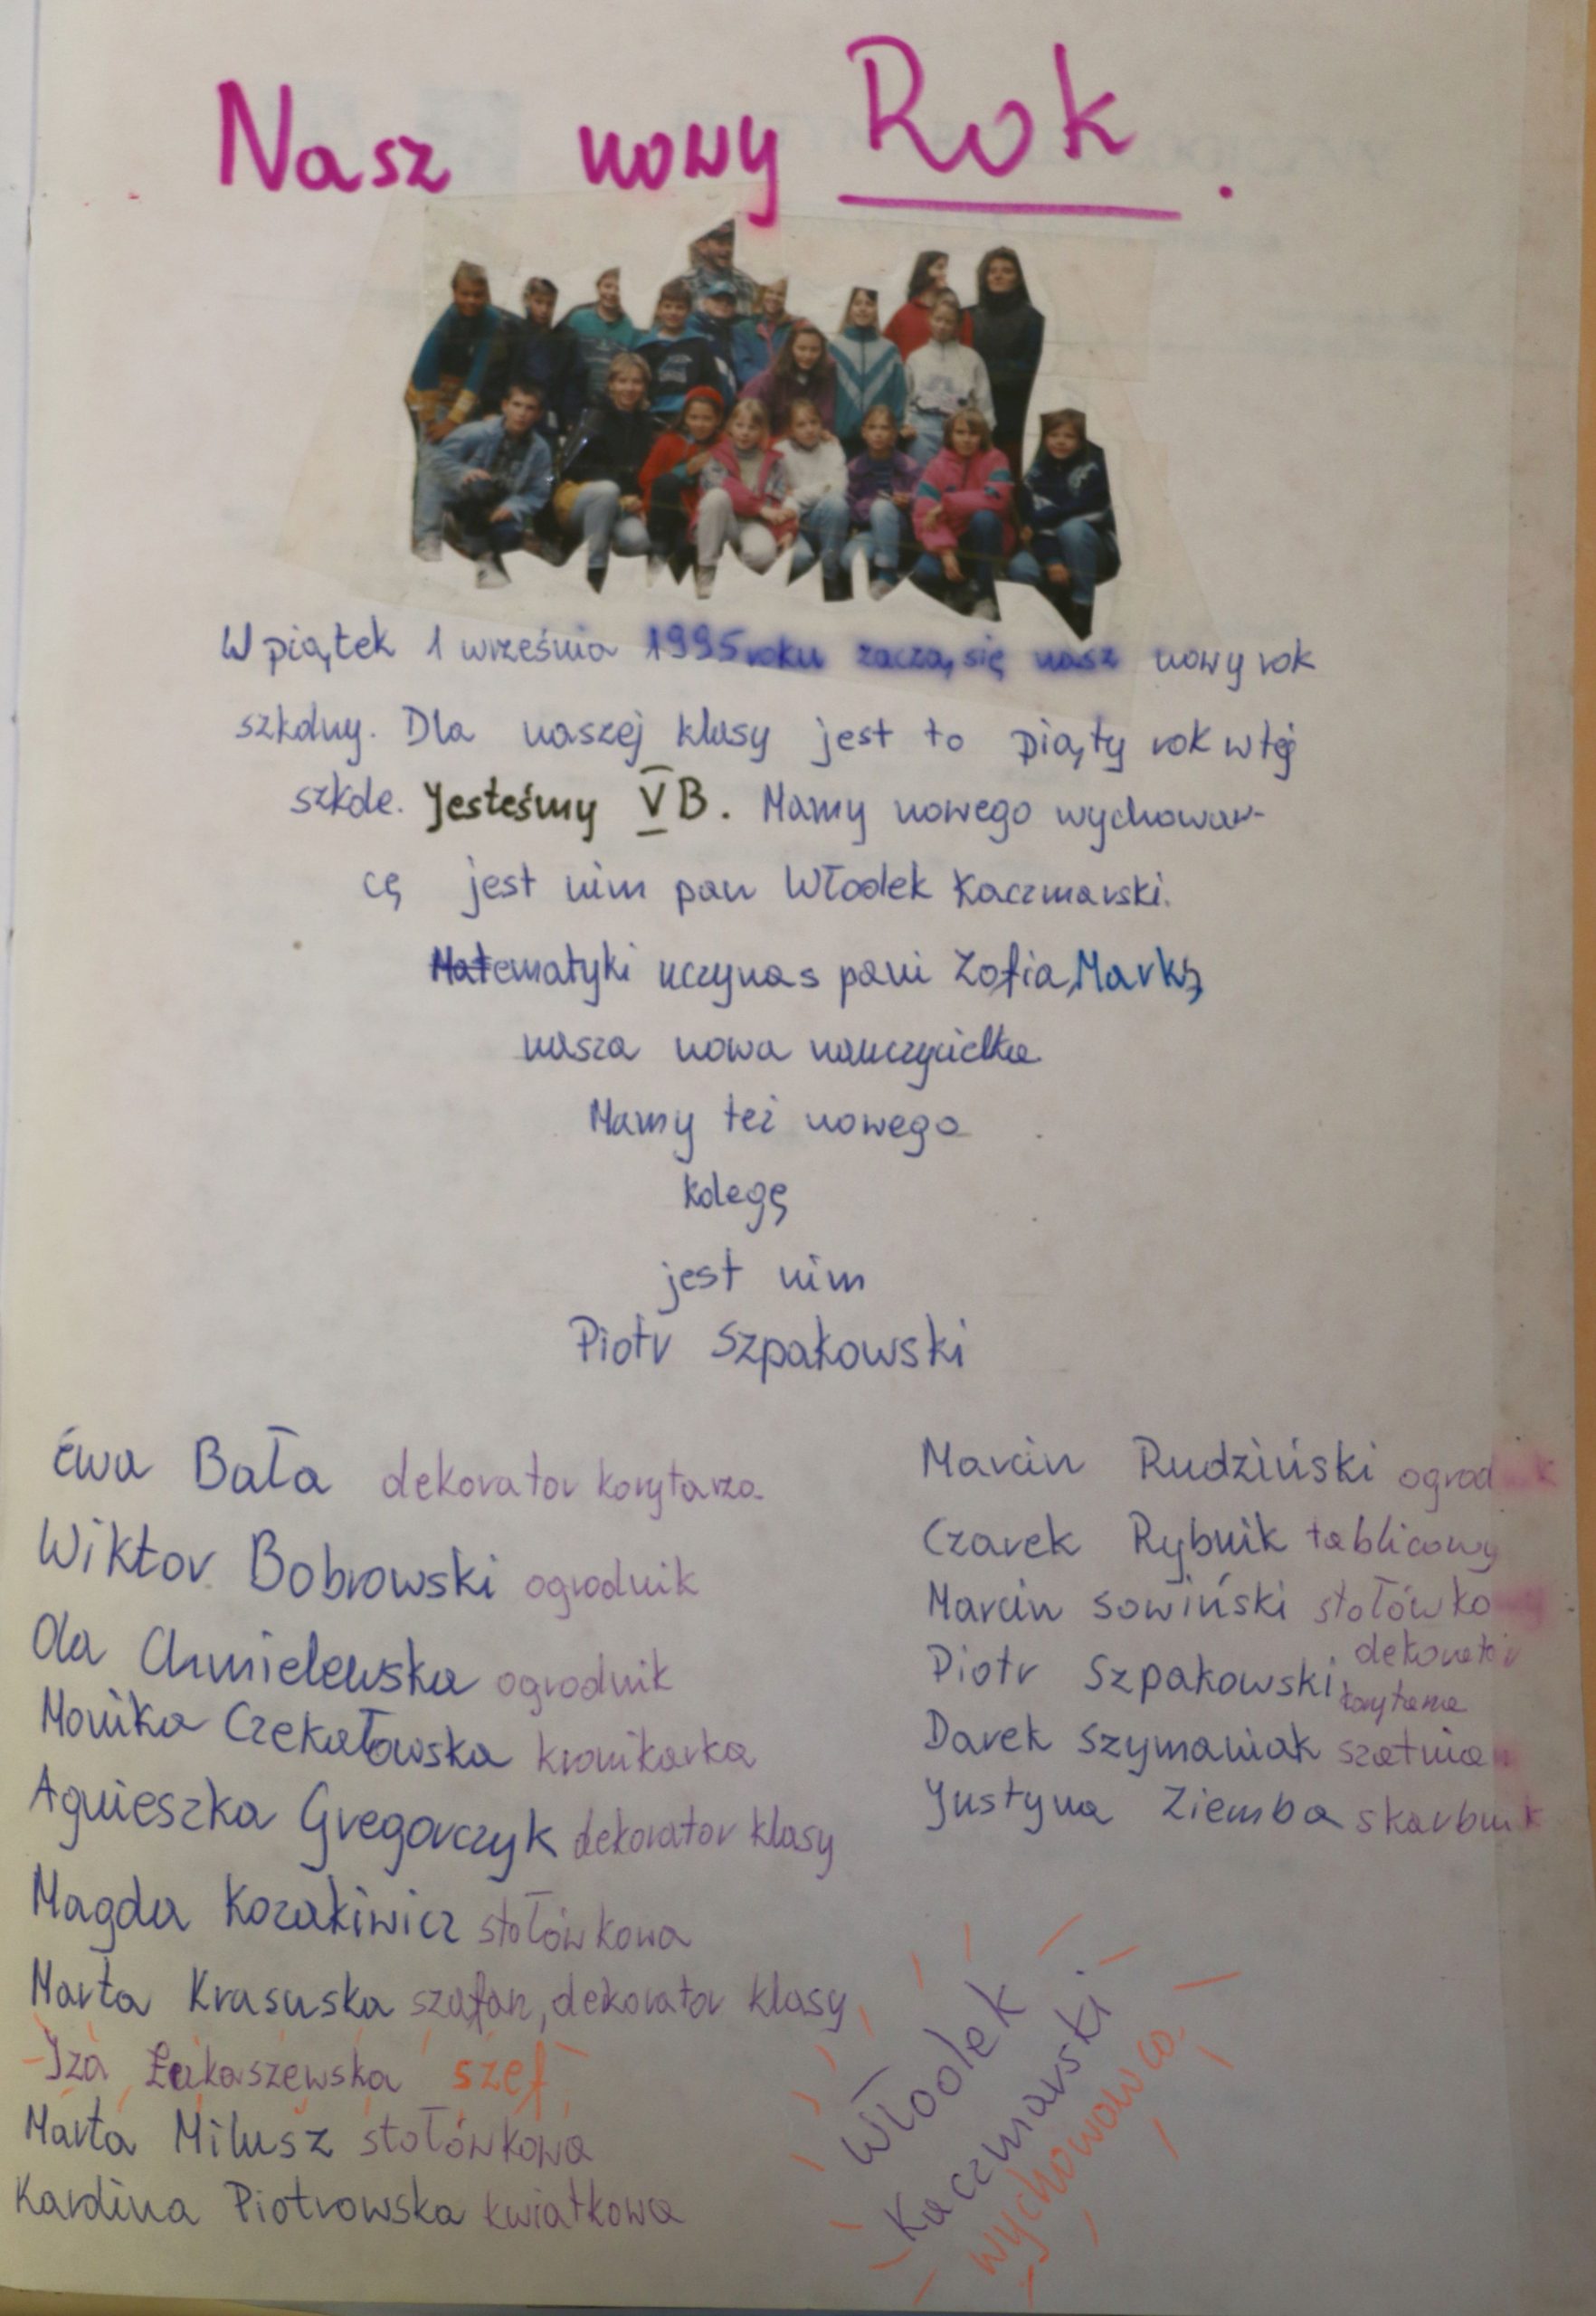 Nasz nowy Rok.
W piątek 1 września 1995 roku zaczą się nasz nowy rok
szkolny. Dla naszej klasy jest to piąty rok w tej
szkole. Jesteśmy V B. Mamy nowego wychowaw-
cę jest nim pan Włodek Kaczmarski.
Matematyki uczy nas pani Zofia Marks,
nasza nowa nauczycielka
Mamy też nowego
kolegę
jest nim
Piotr Szpakowski
Ewa Bała dekorator korytarza
Wiktor Bobrowski ogrodnik
Ola Chmielewska ogrodnik
Monika Czekałowska kronikarka
Agnieszka Gregorczyk dekorator klasy
Magda Kozakiwicz stołówkowa
Marta Krasuska szafarz, dekorator klasy
Iza Łukaszewska szef
Marta Milusz stołówkowa
Karolina Piotrowska kwiatkowa
Marcin Rudziński ogrodnik
Czarek Rybnik tablicowy
Marcin Sowiński stołówkowy
Piotr Szpakowski dekorator
korytarza
Darek Szymaniak szatniarz
Justyna Ziemba skarbnik
Włodek
Kaczmarski
wychowawca